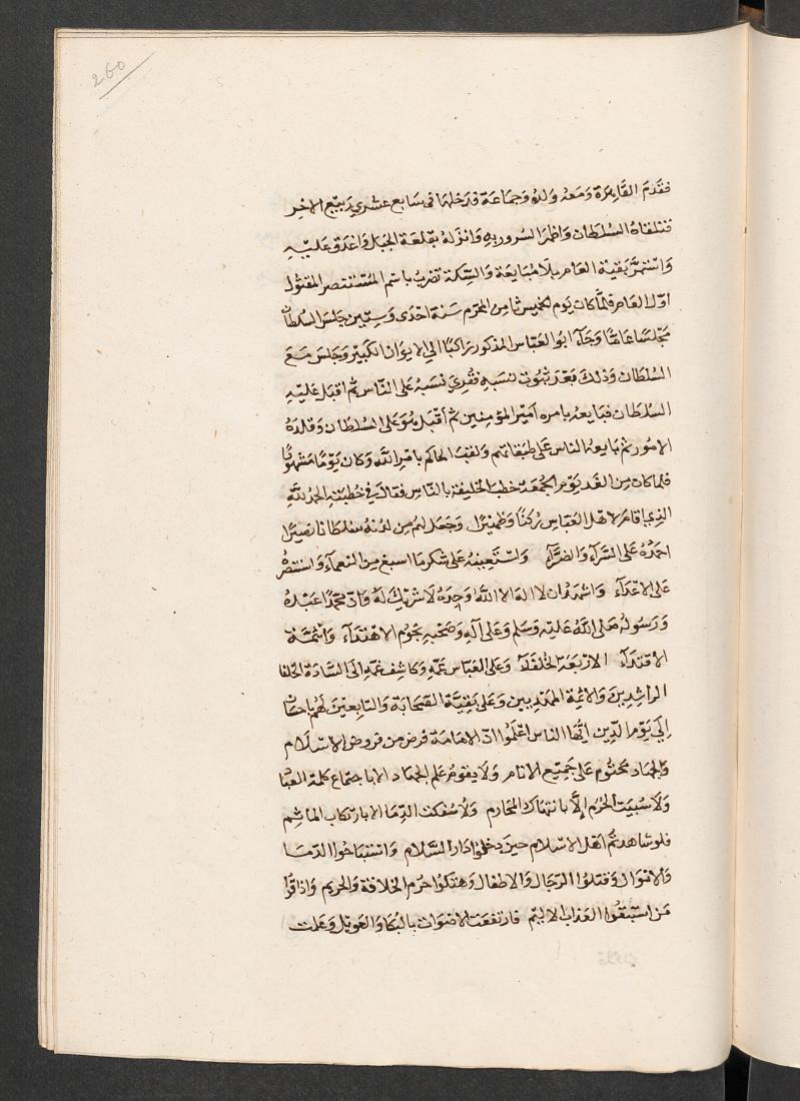 260
فقدم القاهرة ومعه ولده وجماعة فدخلها فى سابع عشرى ربيع الاخر
فتلقاه السلطان واظهر السرور به وانزله بقلعة الجبل واغدق عليه
واستمر بقية العام بلا مبايعة والسكة تضرب باسم المستنصر المقتول
اول العام فلما كان يوم الخميس ثامن المحرم سنة احدى وستين جلس السلطان
مجلسا عاما وجآء ابو العباس المذكور راكبا الي الايوان الكبير وجلس مع
السلطان وذلك بعد ثبوت نسبه فقرى نسبه على الناس ثم اقبل عليه
السلطان فبايعه بامره امير المؤمنين ثم اقبل هو على السلطان وقلده
الامور ثم بايعه الناس على طبقاتهم ولقب الحاكم بامر الله وكان يوما مشهودا
فلما كان من الغد يوم الجمعة خطب الخليفة بالناس فقال في خطبته الحمد لله
الذي اقام لاهل العباس ركنا وظهيرا وجعل لهم من لدنه سلطانا نصيرا
احمده على السرآء والضرآء واستعينه على شكر ما اسبغ من النعمآء واستنصره
على الاعدآء واشهد ان لا اله الا الله وحده لا شريك له وان محمدا عبده
ورسوله صلى الله عليه وسلم وعلى آله وصحبه نجوم الاهتدآء وائمة
الاقتدآء الاربعة الخلفآء وعلى العباس عمه وكاشف غمه ابى السادة الخلفا
الراشدين والائمة المهديين وعلى بقية الصحابة والتابعين لهم باحسان
الي يوم الدين ايها الناس اعلموا ان الامامة فرض من فروض الاسلام
والجهاد محتوم على جميع الانام ولا يقوم علم الجهاد الا باجتماع كلمة العباد
ولا سبيت الحرم الا بانتهاك المحارم ولا سفكت الدما الا بارتكاب الماثم
فلو شاهدتم اهل الاسلام حين دخلوا دار السلام واستباحوا الدما
والاموال وقتلوا الرجال والاطفال وهتكوا حرم الخلافة والحريم واذاقوا
من استبقوا العذاب الاليم فارتفعت الاصوات بالبكا والعويل وعلت